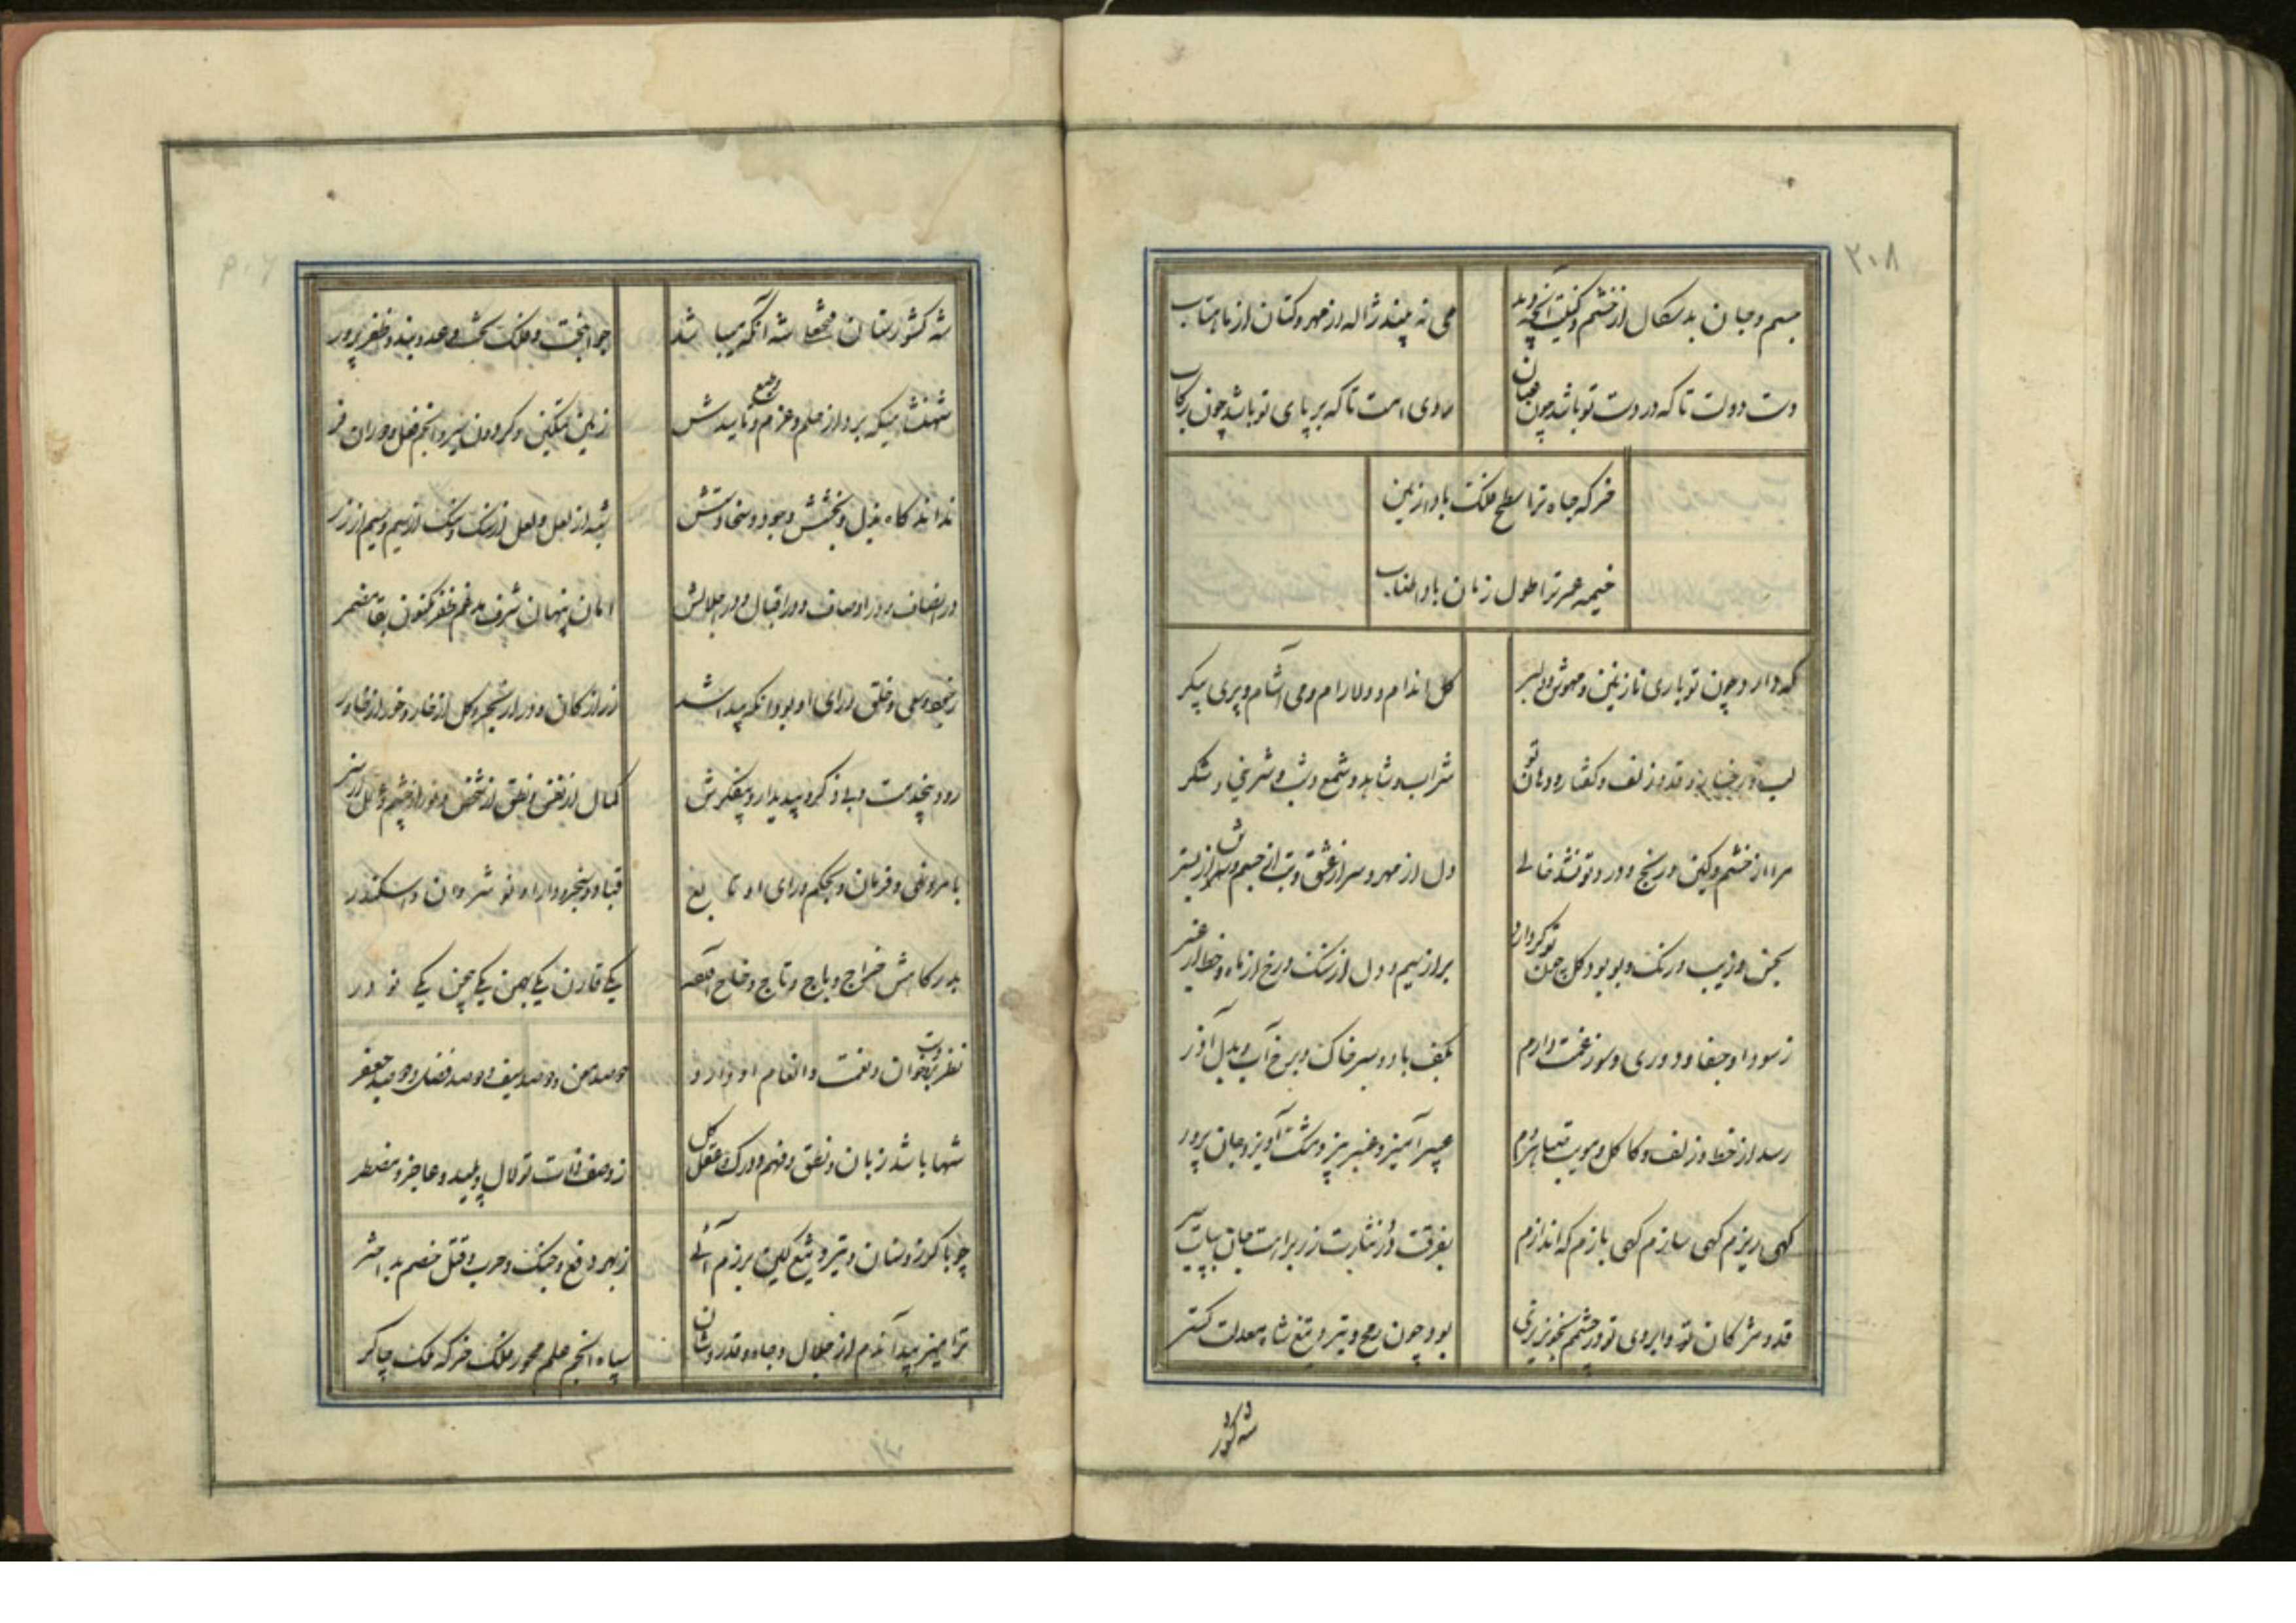 ۲۰۸
جسم و جان بدسگال از خشم و کینت آنچه دید
می نه بیند ژاله از مهر و کتان از ماهتاب
دست دولت تا که در دست تو باشد چون عنان
تا که بر پای تو باشد چون رکاب
خرکه جاه ترا سطح فلک باد از زمین
خیمه عمر ترا طول زمان باد اطناب
که دارد چون تو یاری نازنین و مهوش و دلبر
کل اندام و دلارام و می آشام و پری پیکر
لب و رخسار و قد و زلف و گفتار و دهان تو
شراب و شاهد و شمع و شب و شیرینی و شکر
مرا از خشم و کین و رنج و درد تو نشد خالی
دل از مهر و سر از عشق و تب از جسم و تن از بستر
بحسن و زیب و رنک و بو بود کل چون تو کر دارد
بر از سیم و دل از سنک و رخ از ماه و خط از عنبر
ز سودا و جفا و دوری و سوز غمت دارم
بکف باد و بسر خاک و برخ آب و بدل آذر
رسد از خط و زلف و کاکل و مویت
عبیر آمیز و عنبر بیز و مشک آویز و جان پرور
کهی ریزم کهی سازم کهی بازم که اندازم
بفرقت در نثارت زر برایت جان بپایت سر
قد و مژکان تو و ابروی تو در چشم خونریزی
بود چون رمح و تیر و تیغ شاه معدلت کستر
شه کشور
شه کشورستان فتحعلی شه آنکه میباشد
جوانبخت و فلک تخت و عدوبند و ظفرپرور
شهنشاهیکه برد از حلم و عزم و طبع و تاییدش
زمین تمکین و کردون سیر و انجم فضل و دوران فر
نداند کاه بذل و بخشش و جود و سخاوتش
شبه از لعل و لعل از سنک و سنک از سیم و سیم از زر
در انصاف و در اوصاف و در اقبال و در اجلالش
امان پنهان شرف مدغم ظفر مکنون بقا مضمر
ز فیض و سعی و خلق و رای او بود آنکه پیدا شد
زر از کان و در از بحر و کل از خار و خور از خاور
رود بیخدمت و بی ذکر و بیدیدار و بیفکرش
کمال از نفس و نطق از شخص و نور از چشم و عقل از سر
بامر و نهی و فرمان و بحکم و رای او تابع
قباد و سنجر و دارا و نوشروان و اسکندر
بدرکاهش خراج و باج و تاج و
یکی قارن یکی بهمن یکی چین یکی نوذر
خوان و نعمت و انعام او دارد
دو صد بهمن دو صد سیف و دو صد فضل و دو صد جعفر
شها باشد زبان و نطق و فهم و درک و عقل کل
ز وصف ذات تو لال و پلید و عاجز و مضطر
چو با کوز و سنان و تیر و تیغ کین برزم آئی
ز بهر دفع و جنک و حرب و قتل خصم بداختر
ترا میزیبد آندم از جلال و جاه و قدر و شان
سپاه انجم علم محور فلک خرکه ملک چاکر